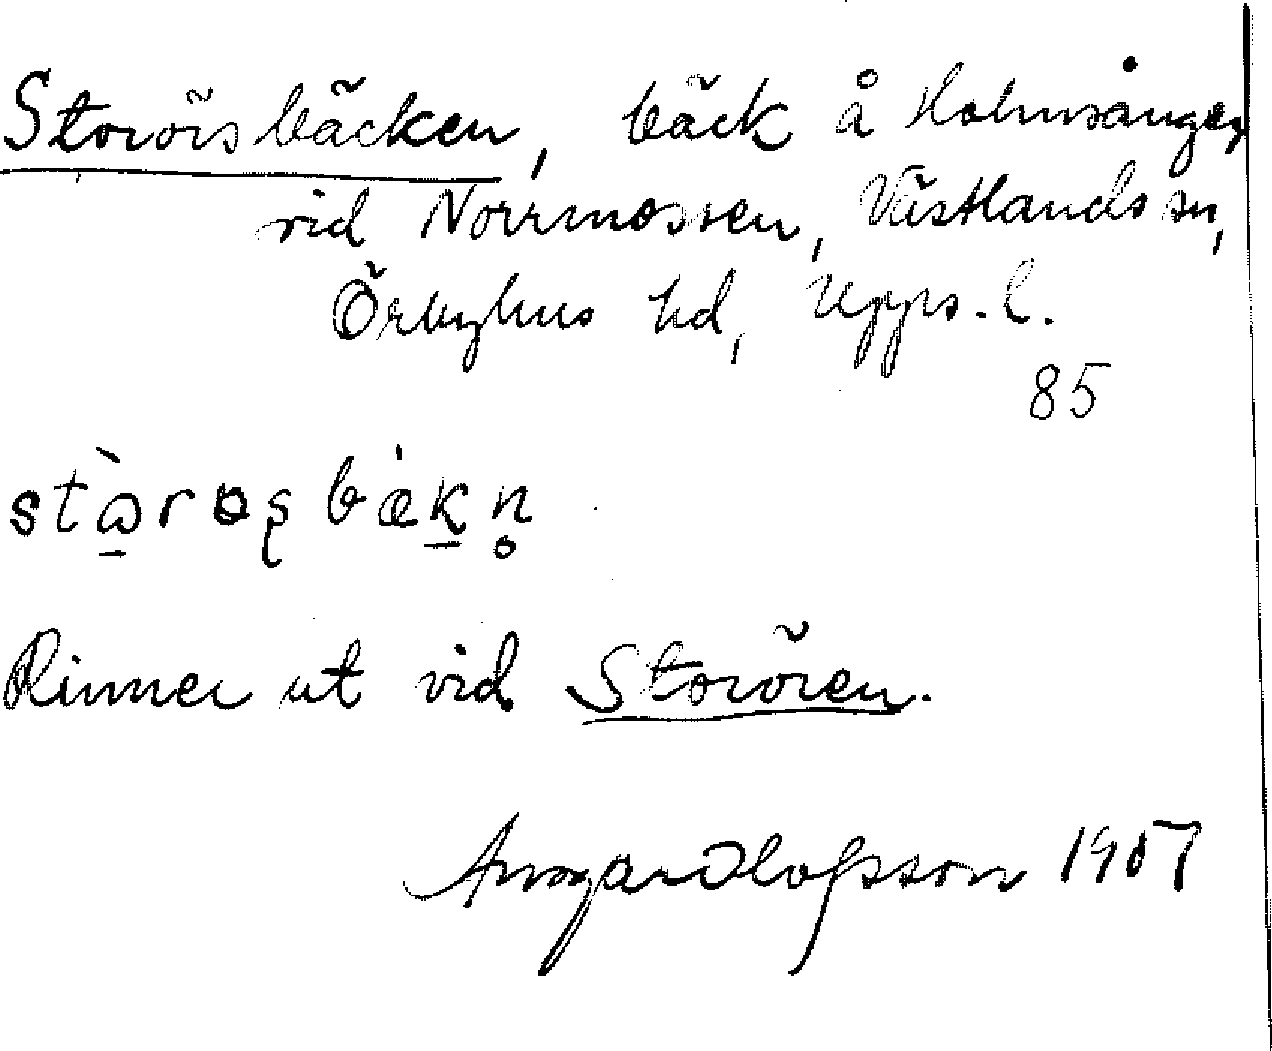 Storörsbäcken, bäck å Holmsånger
vid Norrmossen, Västlands sn,
Örbyhus hd, Upps. l.
85
Rinner ut vid Storören.
Ansgar Olofsson 1907